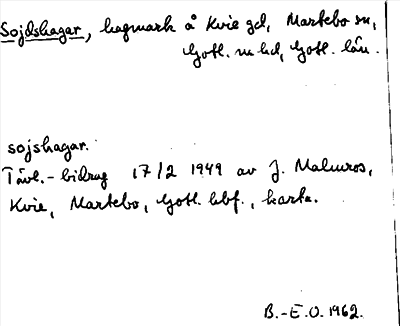 Sojdshagar, hagmark å Kvie gd, Martebo sn,
Gotl. n hd, Gotl. län.
sojshagar.
Tävl.-bidrag 17/2 1949 av J. Malmros,
Kvie, Martebo, Gotl. hbf., karta.
B.-E.O. 1962.